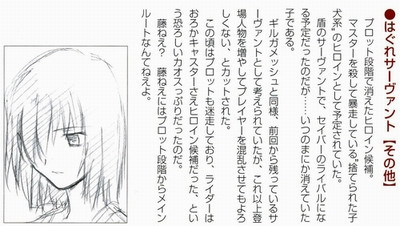 ●はぐれサーヴァント【その他】
プロット段階で消えたヒロイン候補。
マスターを殺して暴走している“捨てられた子
犬系”のヒロインとして予定されていた。
盾のサーヴァントで、セイバーのライバルにな
る予定だったのだが……いつのまにか消えていた
子である。
ギルガメッシュと同様、前回から残っているサ
ーヴァントとして考えられていたが、これ以上登
場人物を増やしてプレイヤーを混乱させてもよろ
しくない、とカットされた。
この頃はプロットも迷走しており、ライダーは
おろかキャスターさえヒロイン候補だった、とい
う恐ろしいカオスっぷりだったのだ。
藤ねえ？ 藤ねえにはプロット段階からメイン
ルートなんてねえよ。